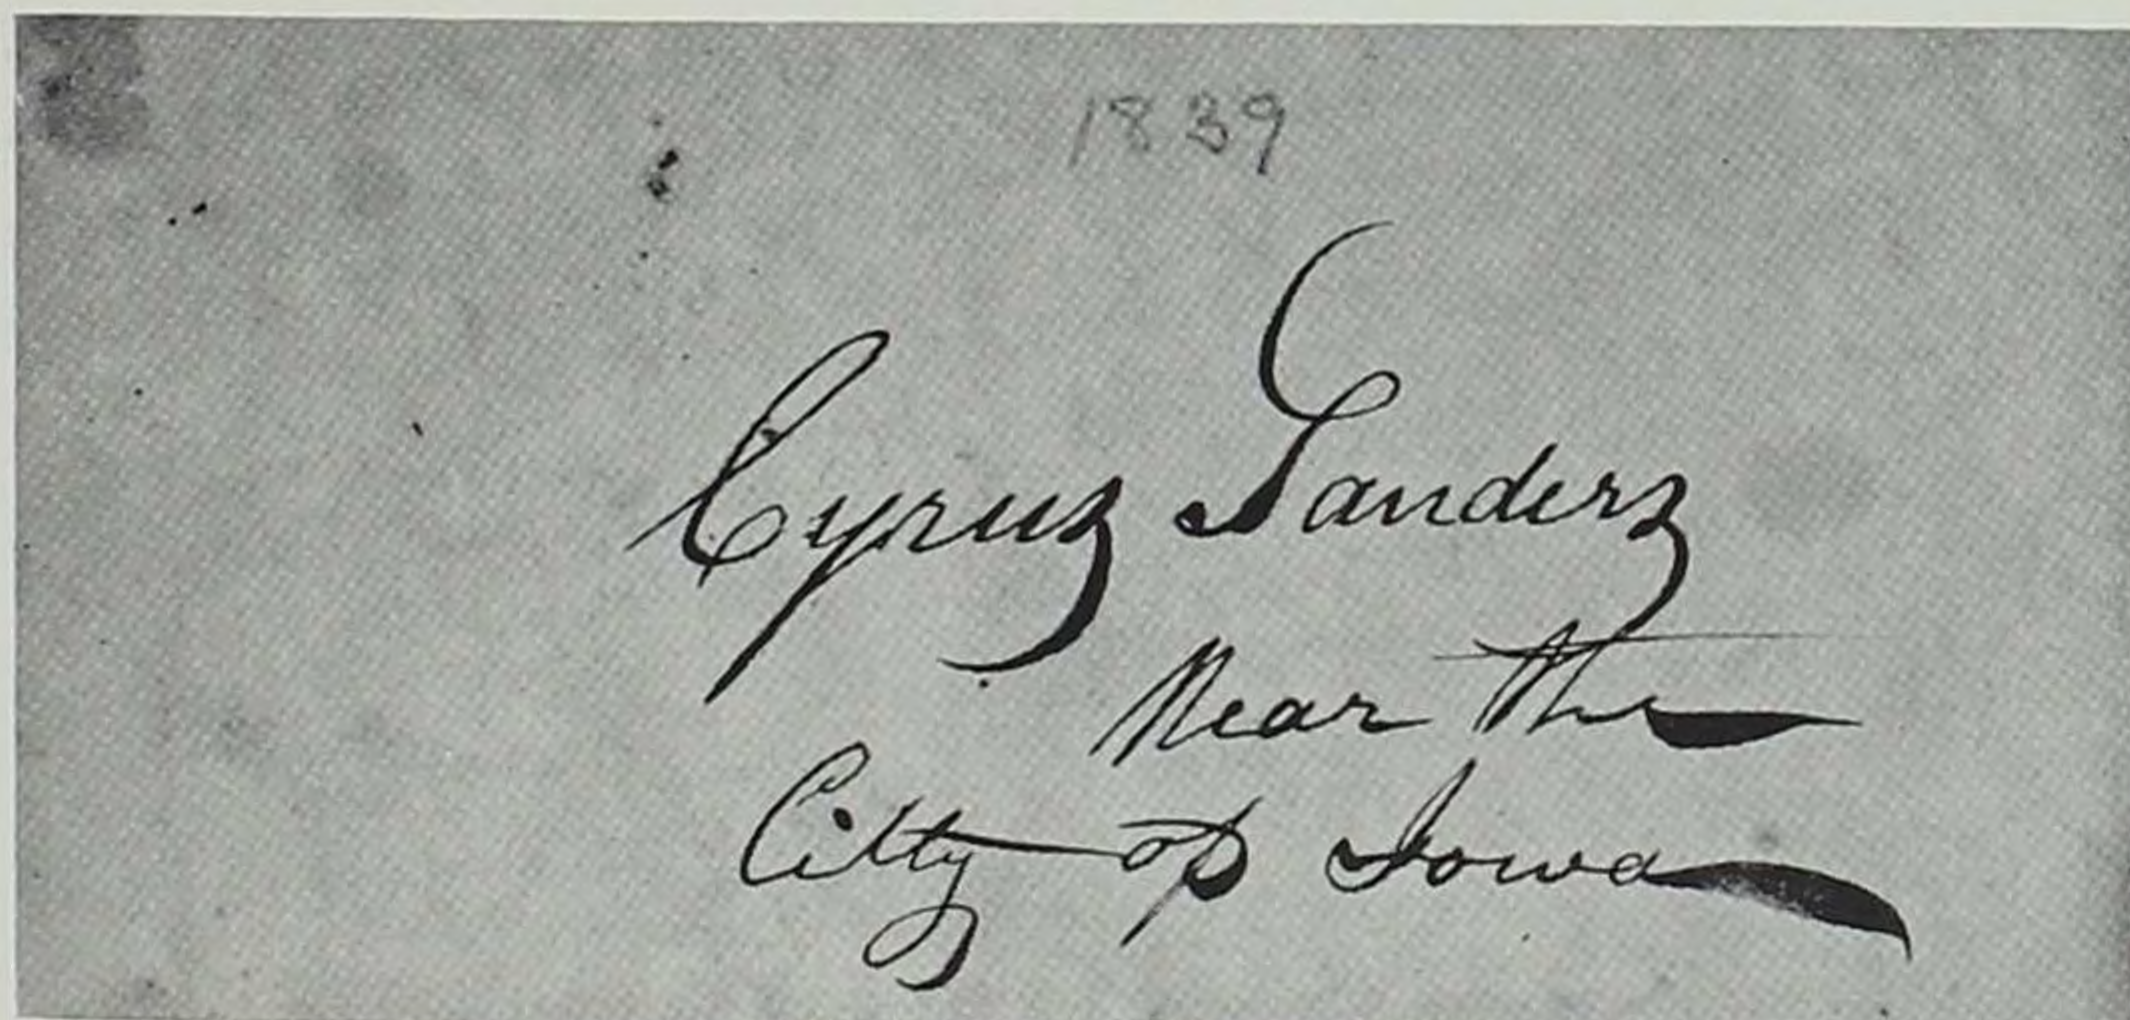 1839
Cyrus Sanders
Near the
Citty of Iowa